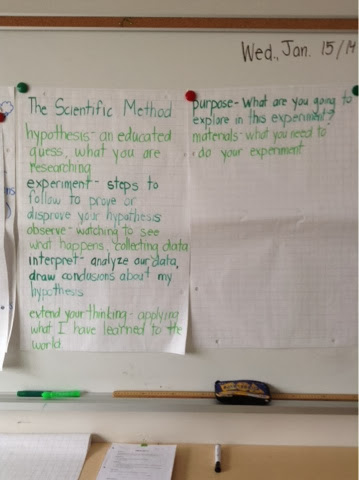 Wed., Jan. 15/14
The Scientific Method
hypothesis - an educated
guess, what you are
researching
experiment - steps to
follow to prove or
disprove your hypothesis
observe - watching to see
what happens, collecting data
interpret - analyze our data,
draw conclusions about my
hypothesis
extend your thinking - applying
what I have learned to the
world
purpose - What are you going to
explore in this experiment?
materials - what you need to
do your experiment